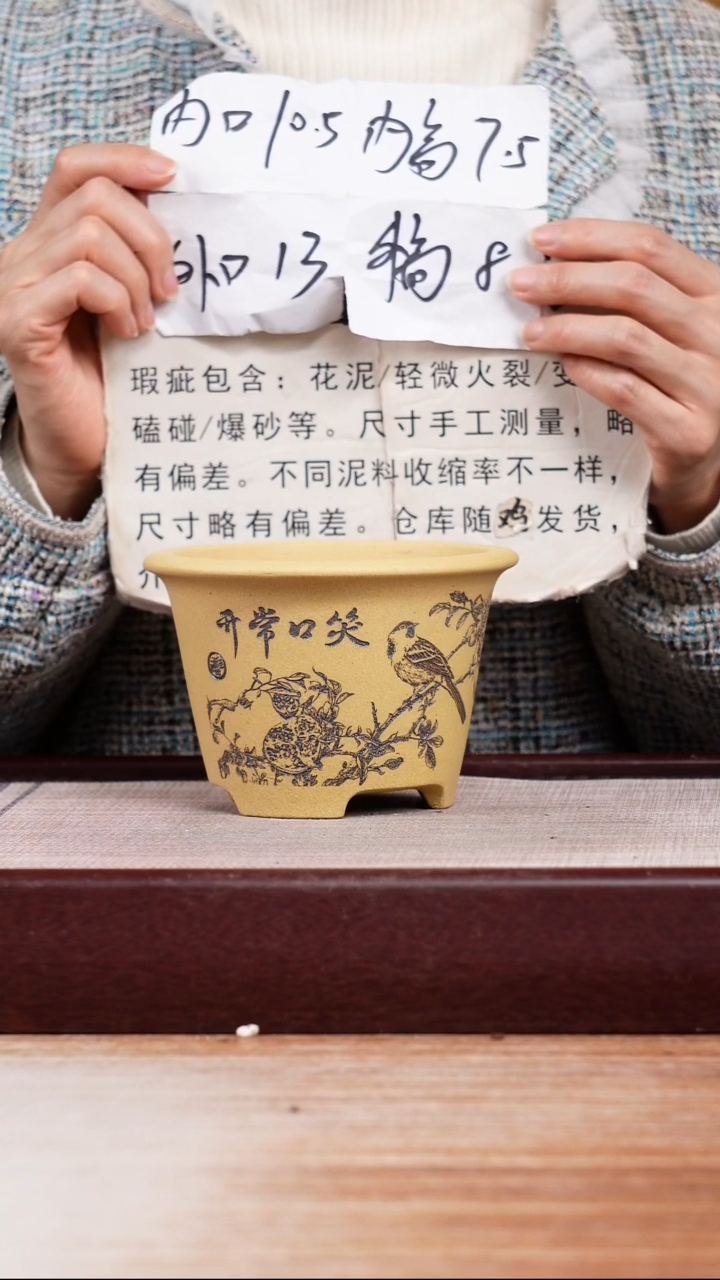 内口 10.5 内高 7.5
外口 13 外高 8
瑕疵包含：花泥/轻微火裂/变
磕碰/爆砂等。尺寸手工测量，略
有偏差。不同泥料收缩率不一样，
尺寸略有偏差。仓库随鸡发货，
笑口常开